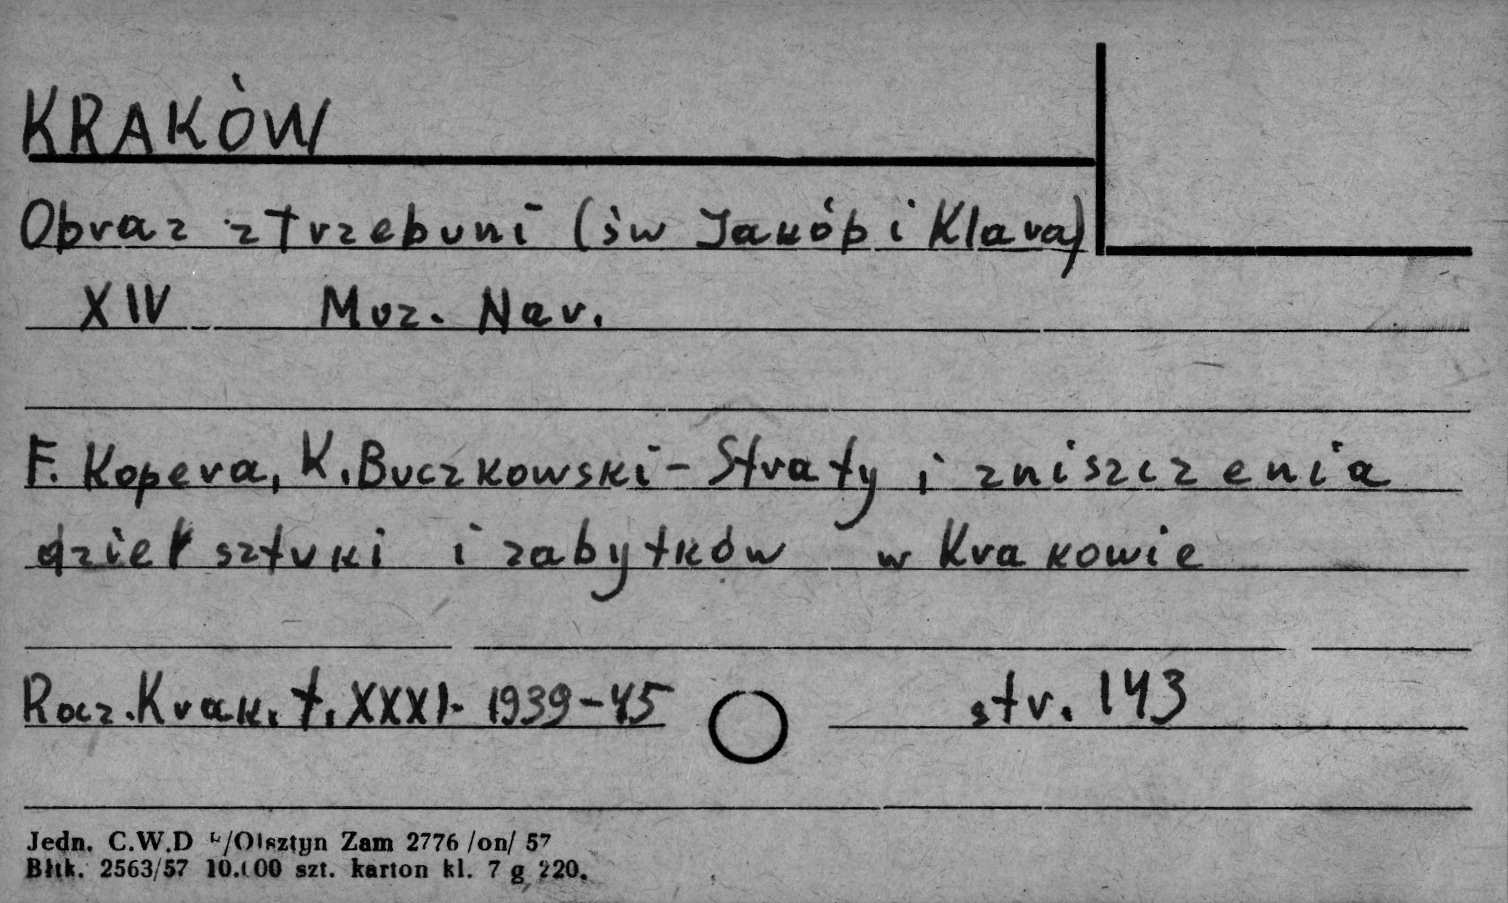 KRAKÓW
Obraz z Trzebuni (św Jakób i Klara)
XIV Muz. Nar.
F. Kopera, K. Buczkowski - Straty i zniszczenia
dzieł sztuki i zabytków w Krakowie
Rocz. Krak. t. XXXI. 1939-45 str. 143
Jedn. C.W.D /Olsztyn Zam 2776 /on/ 57
2563/57 szt. karton kl. 7 g 220.